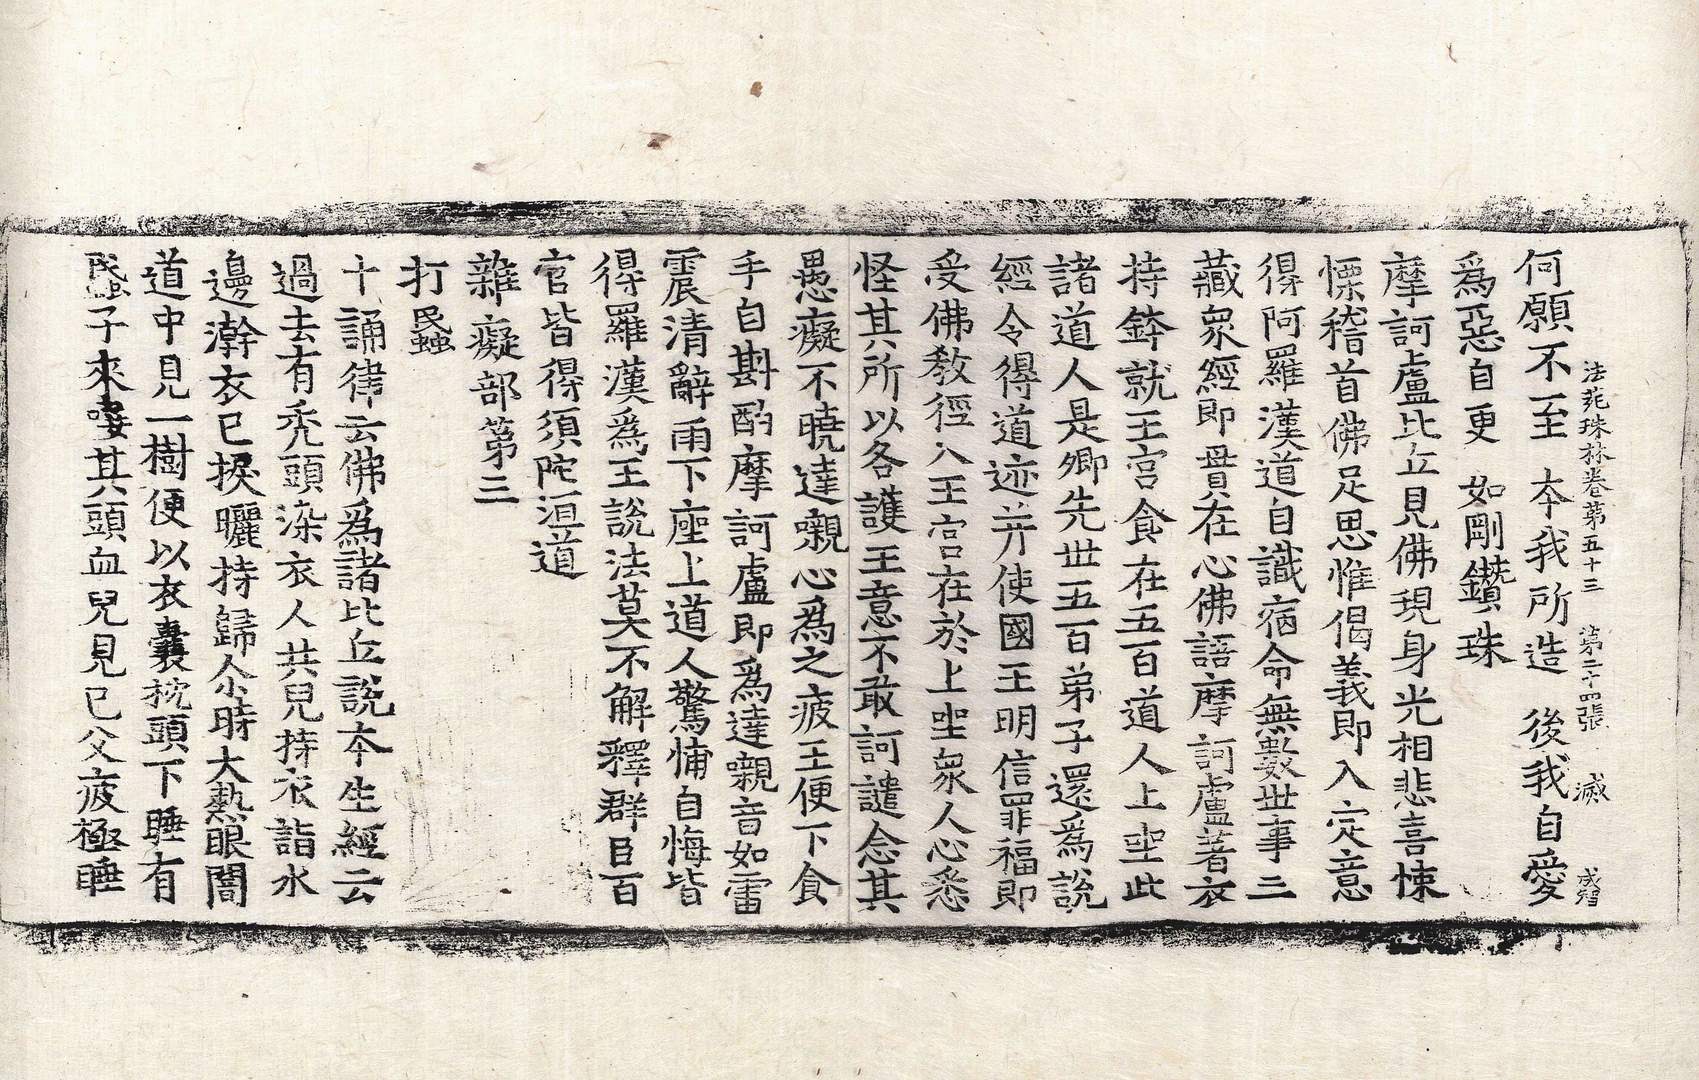 法苑珠林卷第五十三 第二十四張 滅 成智
何願不至 本我所造 後我自愛
爲惡自更 如剛鑽珠
摩訶盧比丘見佛現身光相悲喜悚
慄稽首佛足思惟偈義即入定意
得阿羅漢道自識宿命無數世事三
藏衆經即貫在心佛語摩訶盧著衣
持鉢就王宮食在五百道人上坐此
諸道人是卿先世五百弟子還爲說
經令得道迹并使國王明信罪福即
受佛教徑入王宮在於上坐衆人心恚
怪其所以各護王意不敢訶譴念其
愚癡不曉達嚫心爲之疲王便下食
手自斟酌摩訶盧即爲達嚫音如雷
震清辭雨下座上道人驚怖自悔皆
得羅漢爲王說法莫不解釋群臣百
官皆得須陀洹道
雜癡部第三
打蟁
十誦律云佛爲諸比丘說本生經云
過去有禿頭染衣人共兒持衣詣水
邊澣衣已捩曬持歸尒時大熱眼闇
道中見一樹便以衣囊枕頭下睡有
蟁子來𠲿其頭血兒見已父疲極睡